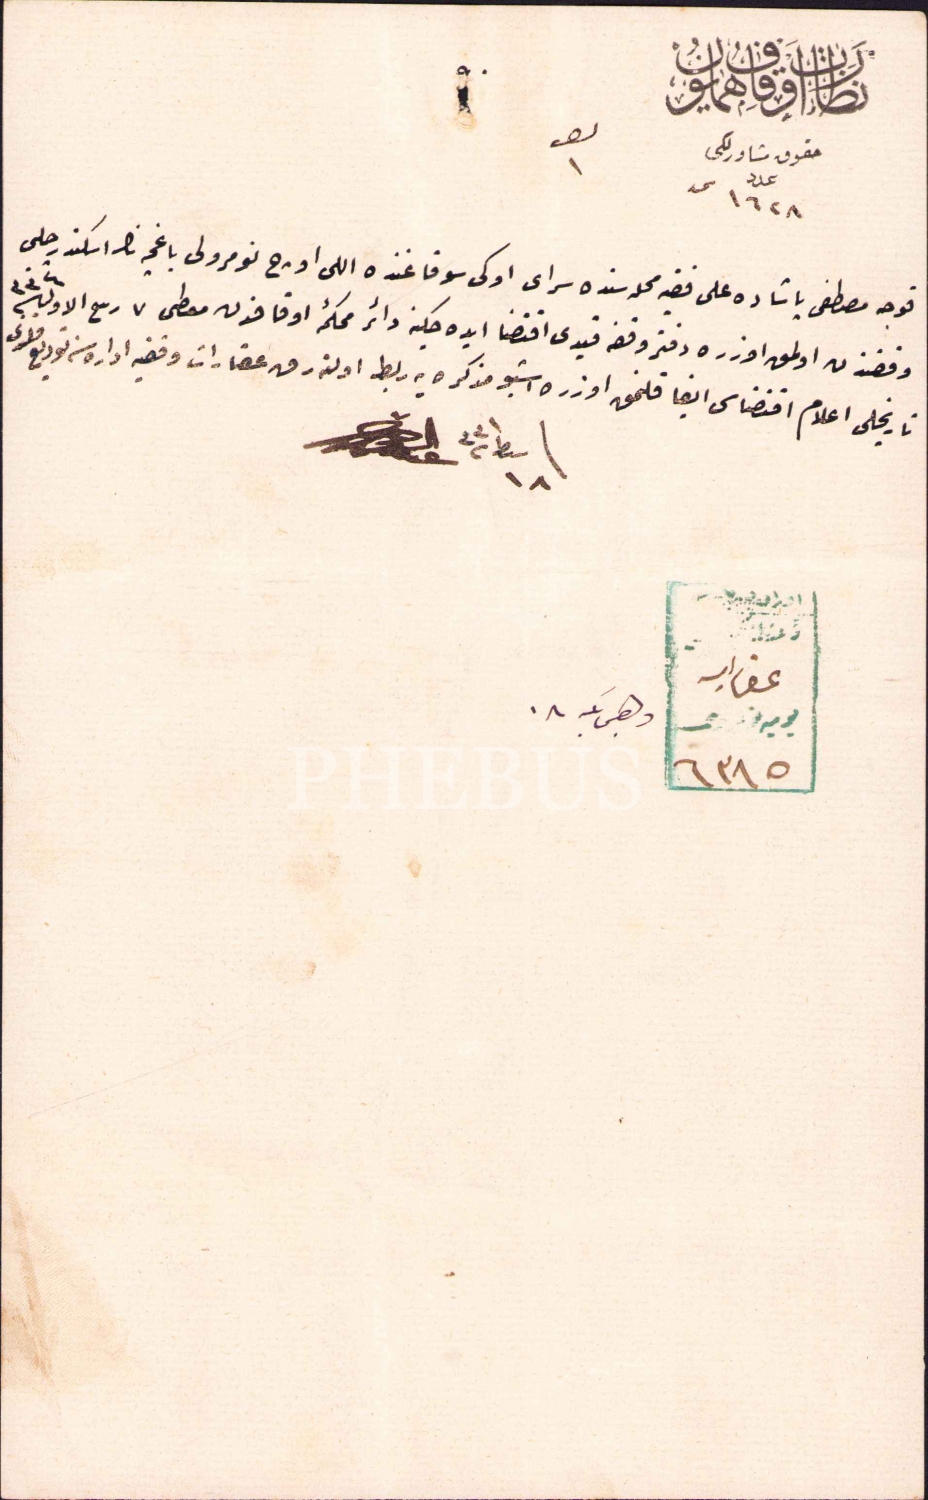 نظارت اوقاف همايون
حقوق مشاورلكى
عدد
١٦٢٨
١
قوجه مصطفى پاشاده على فقيه محله سنده سراى اوكى سوقاغنده اللى اوچ نومرولى باغچه نك اسكندر چلبى
وقفندن اولمق اوزره دفتر وقفه قيدى اقتضا ايده جكنه دائر محكمۀ اوقافدن معطى ٧ ربيع الاول
تاريخلى اعلام اقتضاسى ايفا قلنمق اوزره اشبو مذكره يه ربط اولنه رق عقارات وقفيه اداره سنه توديع
١٨
عقارات
يوميه
٦٣٨٥
وهبى بكه ١٨
PHEBUS